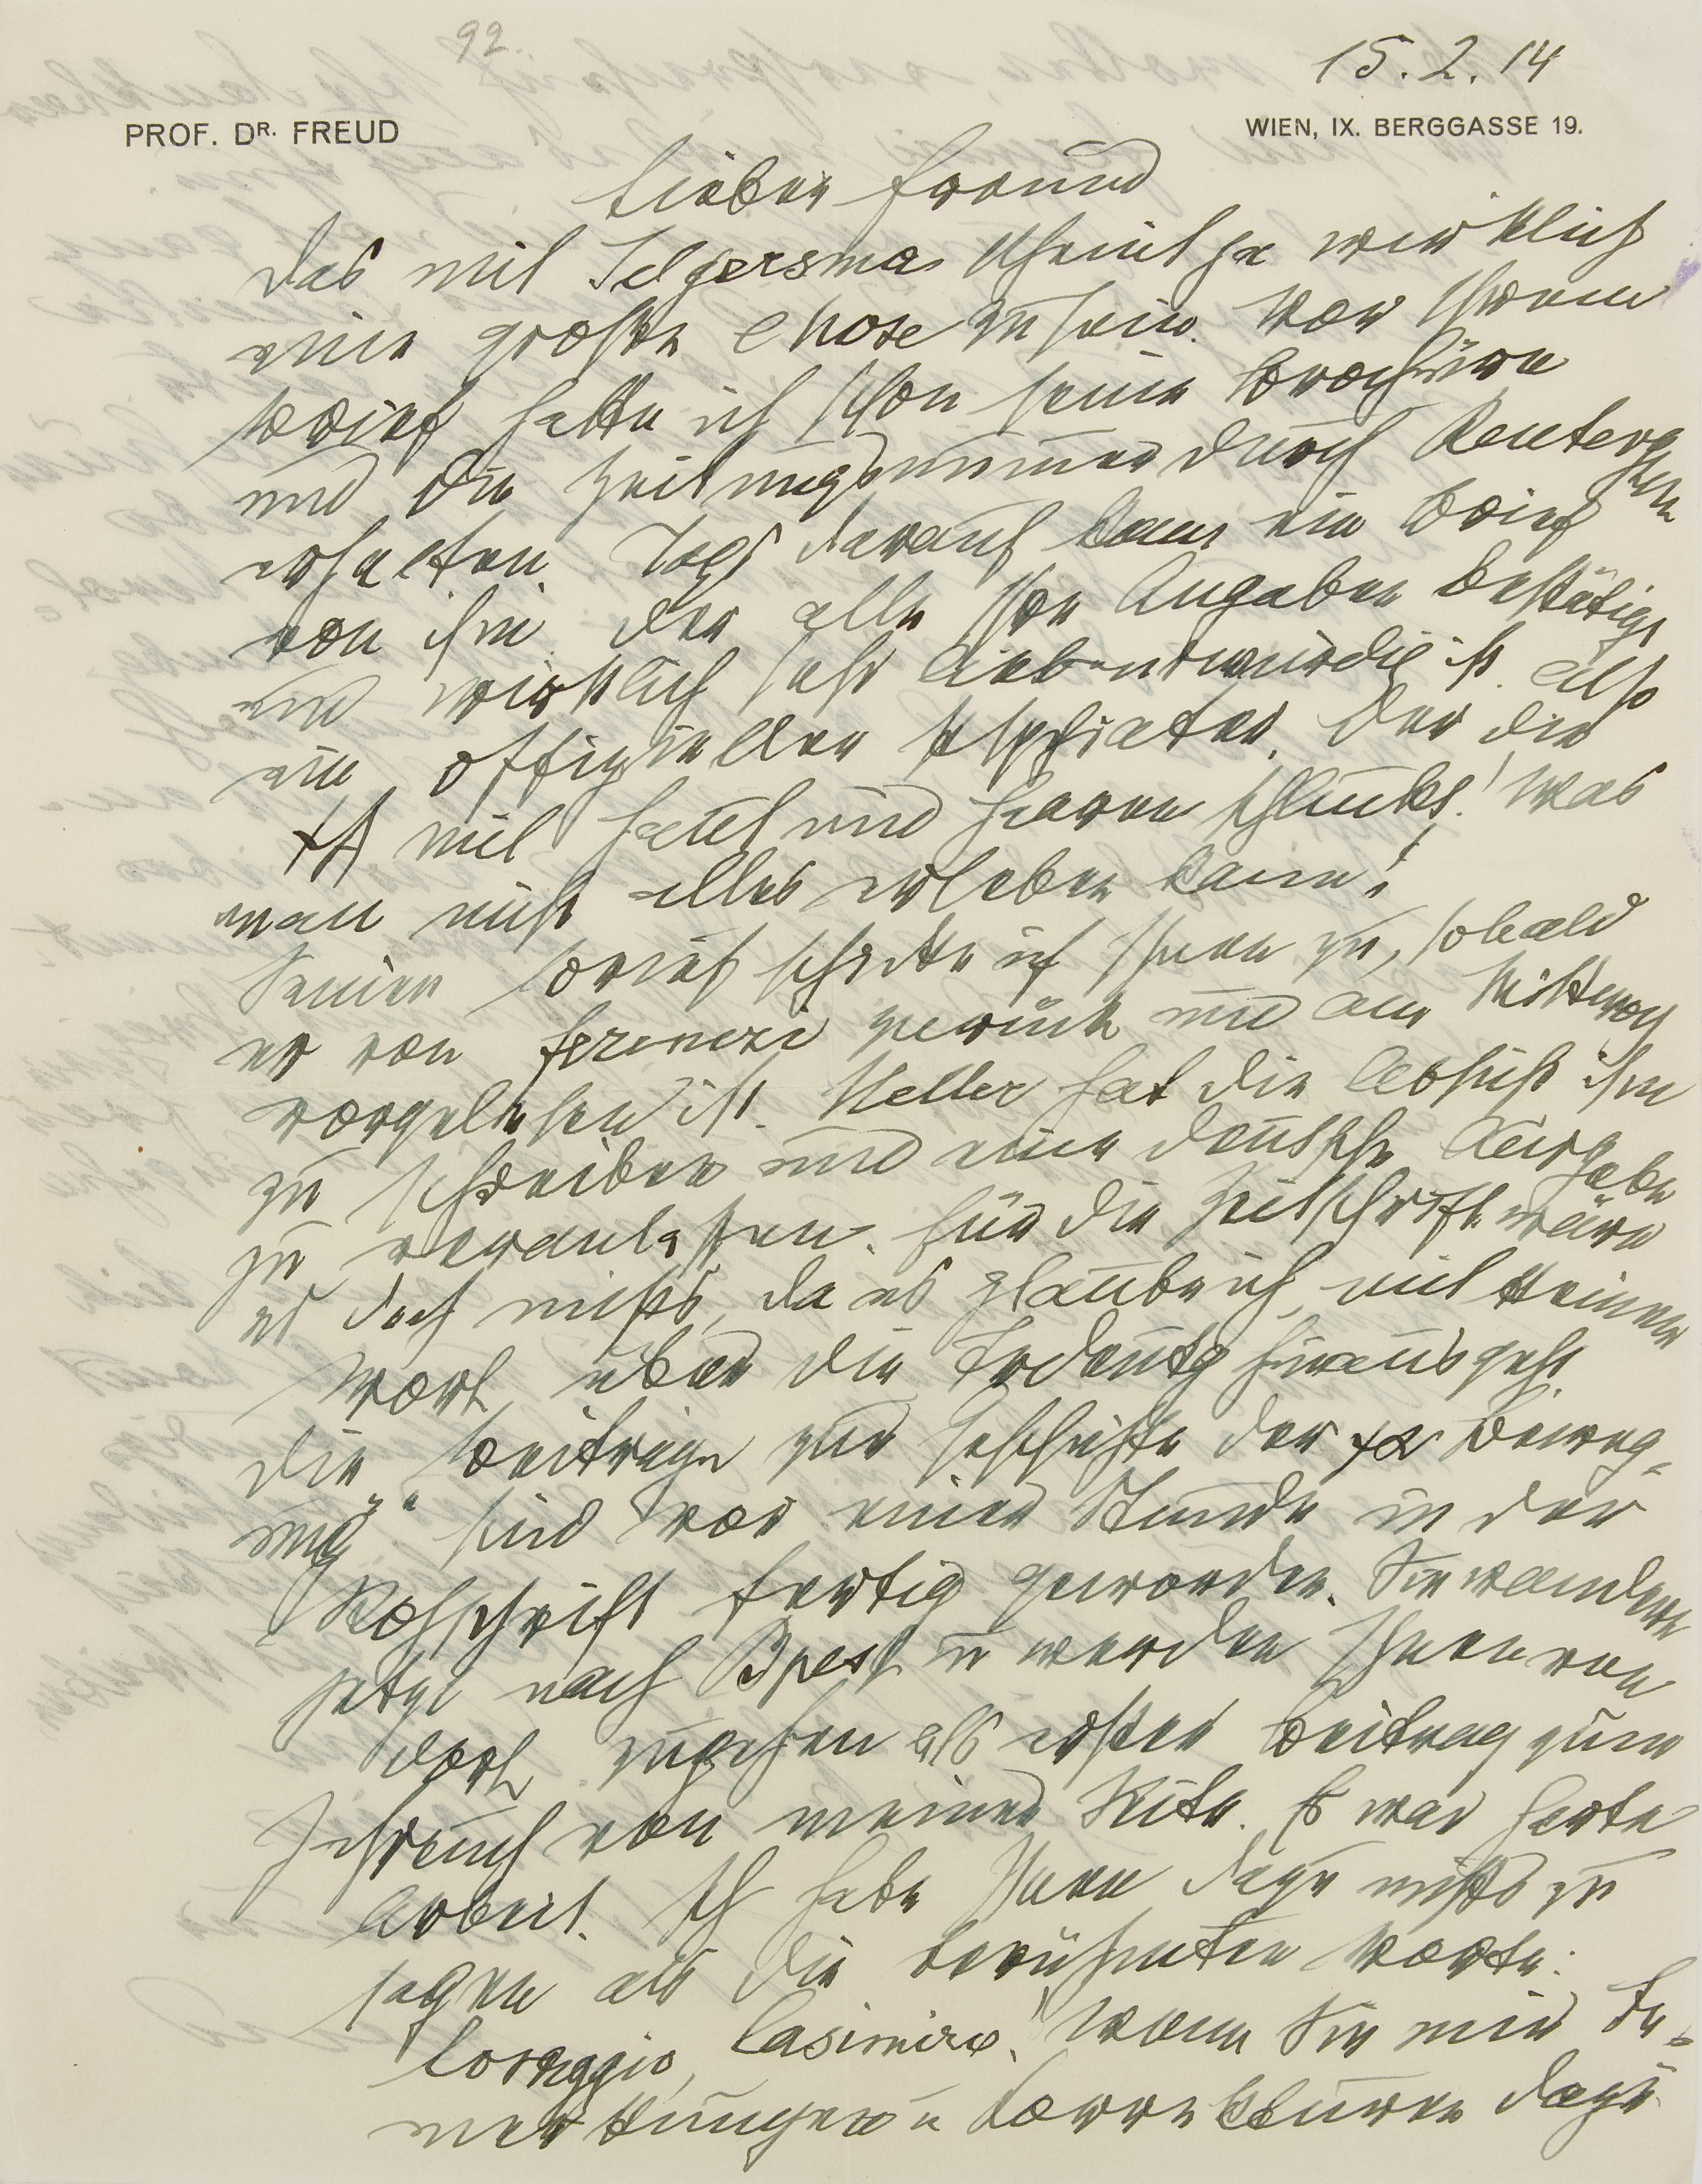 92.
15. 2. 14
PROF. DR. FREUD
WIEN, IX. BERGGASSE 19.
Lieber Freund
Das mit Jelgersma scheint ja wirklich
eine große Chose zu sein. Vor Ihrem
Brief hatte ich schon seine Broschüre
und die Zeitungsnummer durch Renterghem
erhalten. Tags darauf kam ein Brief
von ihm, der alle Ihre Angaben bestätigt
und wirklich sehr liebenswürdig ist. Also
ein offizieller Psychiater, der die
ΨA mit Haut und Haaren schluckt! Was
man nicht alles erleben kann!
Seinen Brief schicke ich Ihnen zu, sobald
er von Ferenczi zurück und am Mittwoch
vorgelesen ist. Heller hat die Absicht ihm
zu schreiben und eine deutsche Ausgabe
zu veranlassen. Für die Zeitschrift wäre
es doch nichts, da es glaube ich, mit keinem
Wort über die Trdeutg hinausgeht.
Die „Beiträge zur Geschichte der ΨA Beweg-
ung“ sind vor einer Stunde in der
Rohschrift fertig geworden. Sie wandern
jetzt nach Bpest u werden Ihnen von
dort zugehen als erster Beitrag zum
Jahrbuch von meiner Seite. Es war harte
Arbeit. Ich habe Ihnen dazu nichts zu
sagen als die berühmten Worte:
Coraggio, Casimiro! Wenn Sie mir Be-
merkungen u Korrekturen dazu